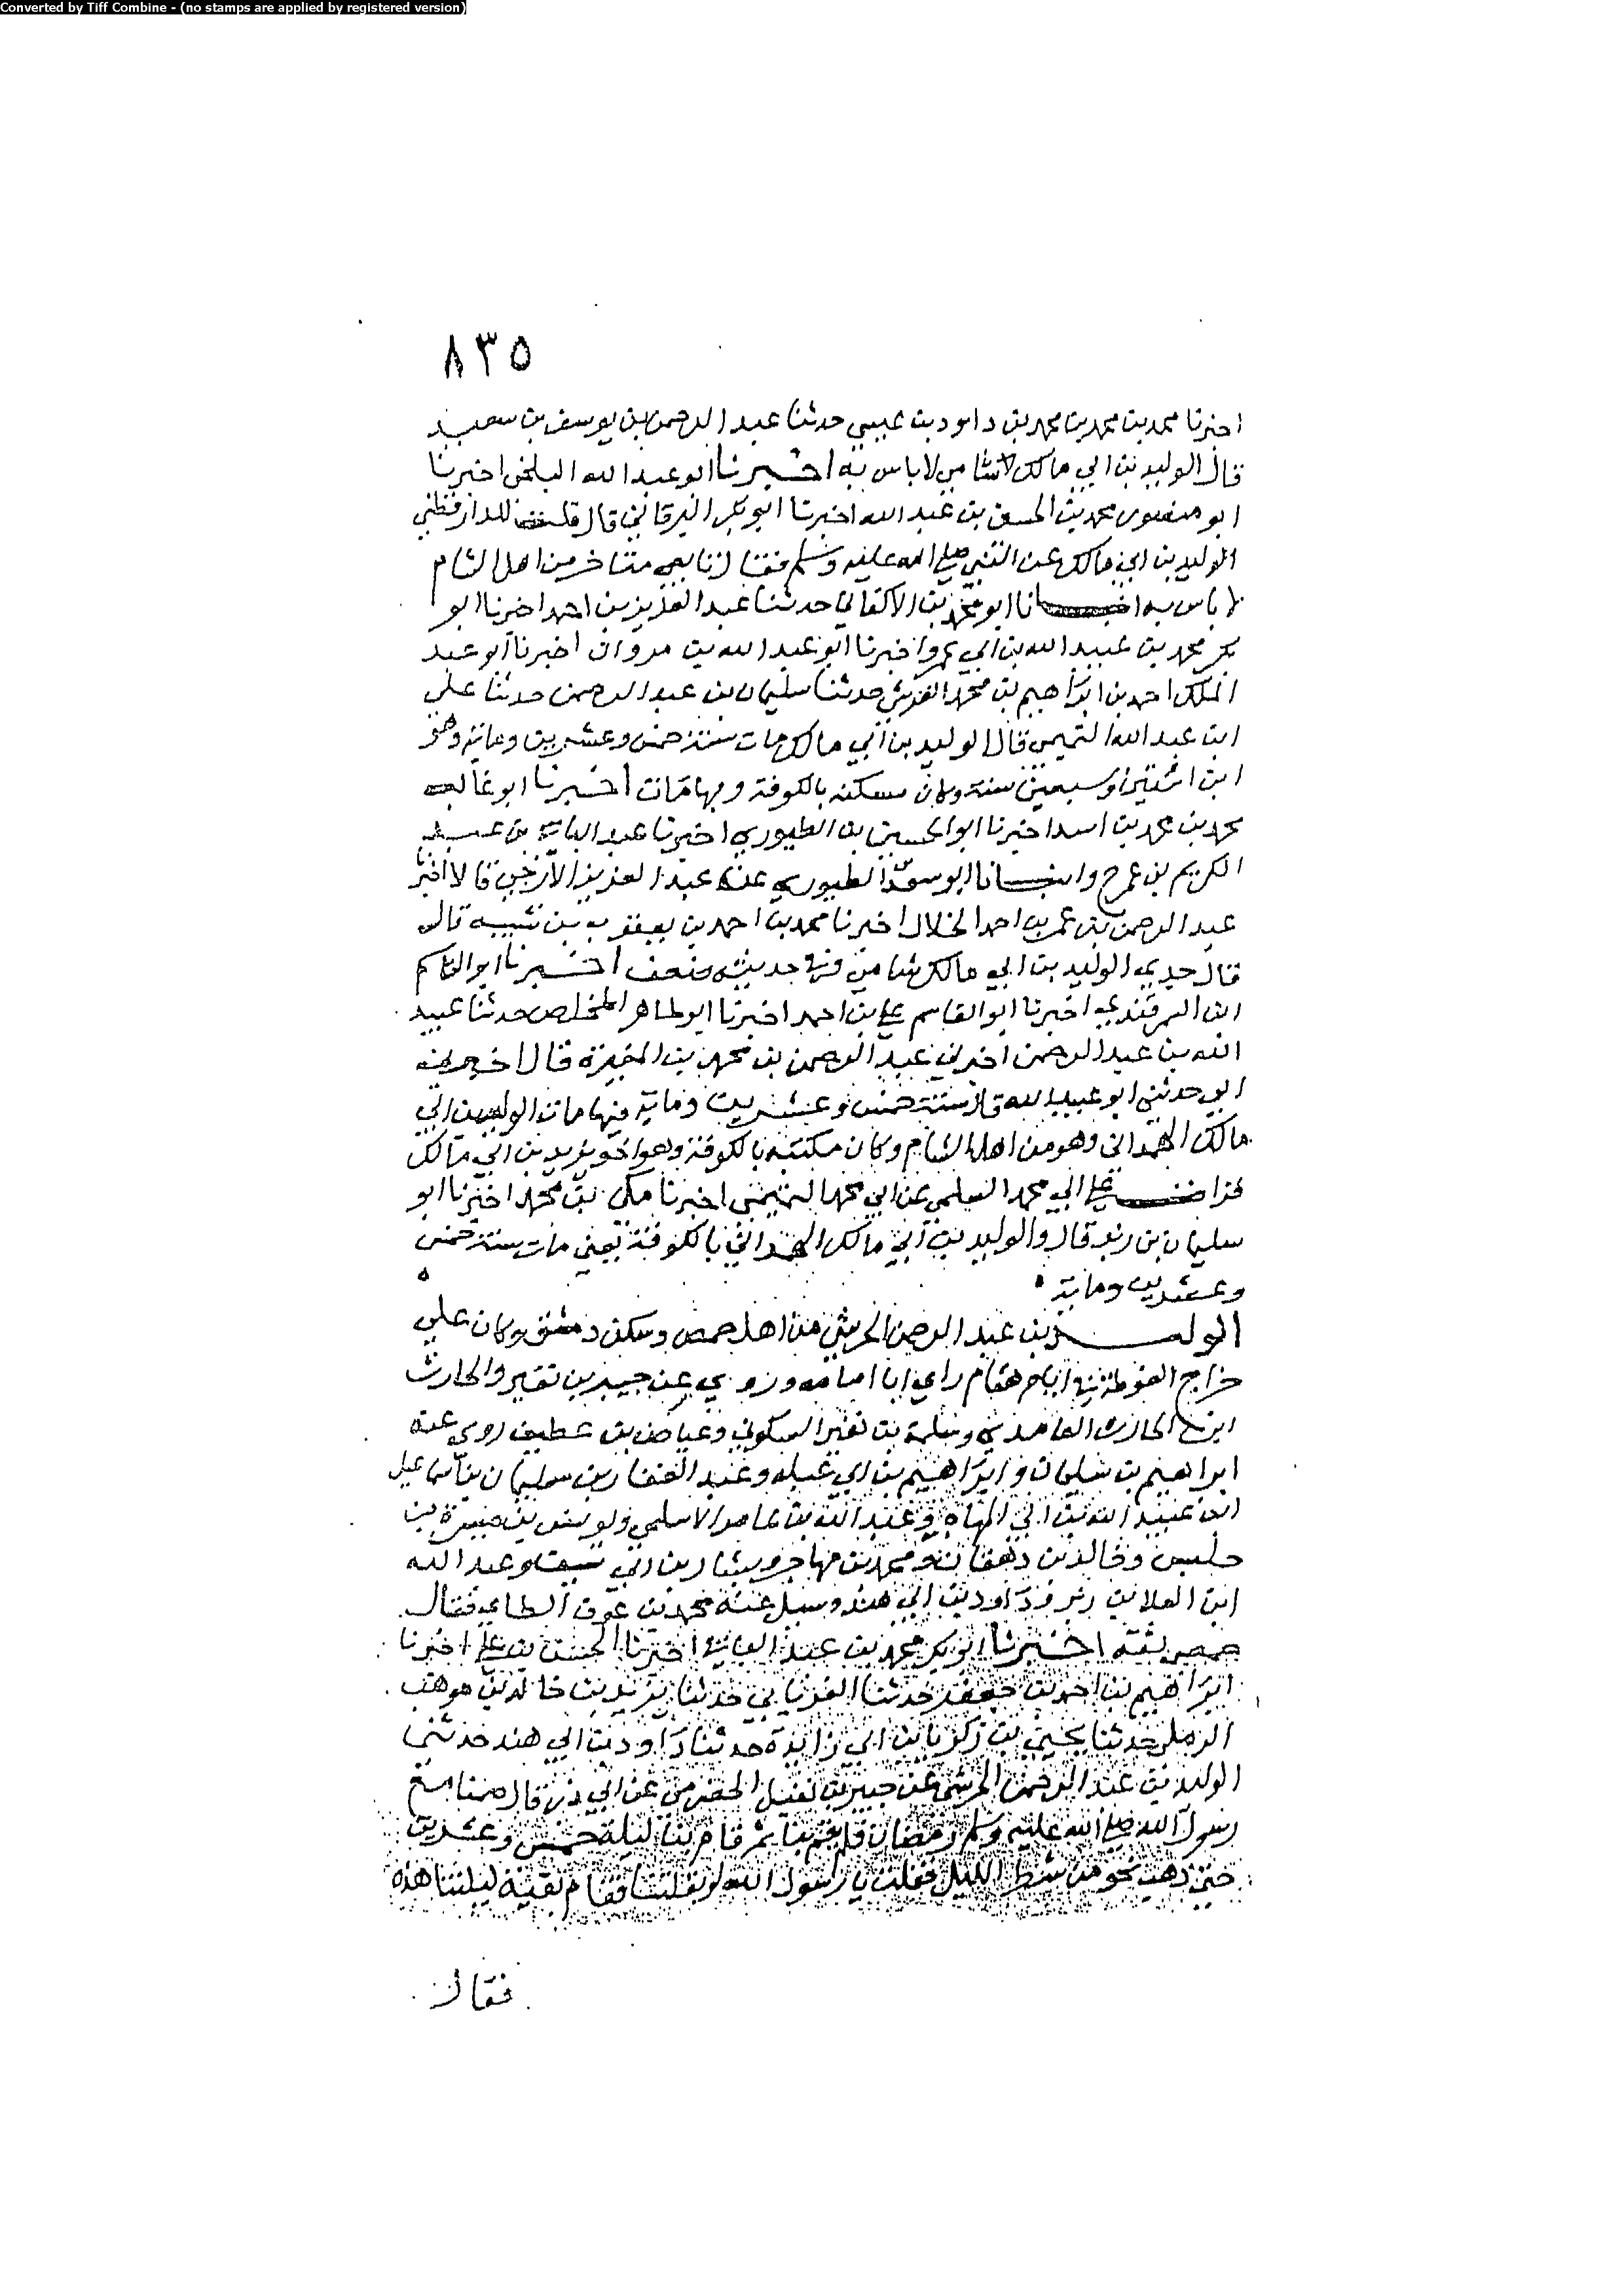 Converted by Tiff Combine - (no stamps are applied by registered version)
٨٣٥
اخبرنا محمد بن محمد بن محمد بن داود بن عيسى حدثنا عبد الرحمن بن يوسف بن سعيد
قال الوليد بن ابي مالك شامي لا باس به اخبرنا ابو عبد الله البلخي اخبرنا
ابو منصور محمد بن الحسين بن عبد الله اخبرنا ابو بكر البرقاني قال قلت للدارقطني
الوليد بن ابي مالك عن النبي صلى الله عليه وسلم فقال تابعي متاخر من اهل الشام
لا باس به انا ابو محمد بن الاكفاني حدثنا عبد العزيز بن احمد اخبرنا ابو
بكر محمد بن عبيد الله بن ابي عمرو اخبرنا ابو عبد الله بن مروان اخبرنا ابو عبد
الملك احمد بن ابراهيم بن محمد القرشي حدثنا سليمان بن عبد الرحمن حدثنا علي
ابن عبد الله التميمي قال الوليد بن ابي مالك مات سنة خمس وعشرين ومائة وهو
ابن اثنتين وسبعين سنة وكان مسكنه بالكوفة وبها مات اخبرنا ابو غالب
محمد بن محمد بن اسد اخبرنا ابو الحسين بن الطيوري اخبرنا عبد الباقي بن عبد
الكريم بن عمر ح وانبانا ابو سعد الطيوري عن عبد العزيز الازجي قالا اخبرنا
عبد الرحمن بن عمر بن احمد الخلال اخبرنا محمد بن احمد بن يعقوب بن شيبه قال
قال جدي الوليد بن ابي مالك شامي وفي حديثه ضعف اخبرنا ابو القاسم
ابن السمرقندي اخبرنا ابو القاسم علي بن احمد اخبرنا ابو طاهر المخلص حدثنا عبيد
الله بن عبد الرحمن اخبرني عبد الرحمن بن محمد بن المغيرة قال اخبرني
ابي حدثني ابو عبيد الله قال سنة خمس وعشرين وماية فيها مات الوليد بن ابي
مالك الهمداني وهو من اهل الشام وكان مكتبه بالكوفة وهو اخو يزيد بن ابي مالك
علي ابي محمد السلمي عن ابي محمد التميمي اخبرنا مكي بن محمد اخبرنا ابو
سليمان بن زبد قال والوليد بن ابي مالك الهمداني بالكوفة يعني مات سنة خمس
وعشرين وماية
الوليد بن عبد الرحمن الجرشي من اهل حمص وسكن دمشق وكان علي
خراج الغوطة في ايام هشام راي ابا امامه وروي عن جبير بن نفير والحارث
ابن الحارث الغامدي وسلمة بن نفير السكوني وعياض بن غطيف روى عنه
ابراهيم بن سليمان وابراهيم بن ابي عبله وعبد الغفار بن سليمان بن اسماعيل
ابن عبيد الله بن ابي المهاجر وعبد الله بن عامر الاسلمي ويونس بن ميسرة بن
حلبس وخالد بن دهقان ومحمد بن مهاجر وبشار بن ابي سيف وعبد الله
ابن العلا بن زبر وداود بن ابي هند وسيل عنه محمد بن عوف الطاي فقال
حمصي ثقه اخبرنا ابو بكر محمد بن عبد الباقي اخبرنا الحسن بن علي اخبرنا
ابراهيم بن احمد بن جعفر حدثنا الفريابي حدثنا يزيد بن خالد بن موهب
الرملي حدثنا يحيى بن زكريا بن ابي زايدة حدثنا داود بن ابي هند حدثني
الوليد بن عبد الرحمن الجرشي عن جبير بن نفير الحضرمي عن ابي ذر قال صمنا مع
رسول الله صلى الله عليه وسلم رمضان فلم يقم بنا ثم قام بنا ليلة خمس وعشرين
حتى ذهب نحو من شطر الليل فقلت يا رسول الله لو نفلتنا فقام بقية ليلتنا هذه
فقال